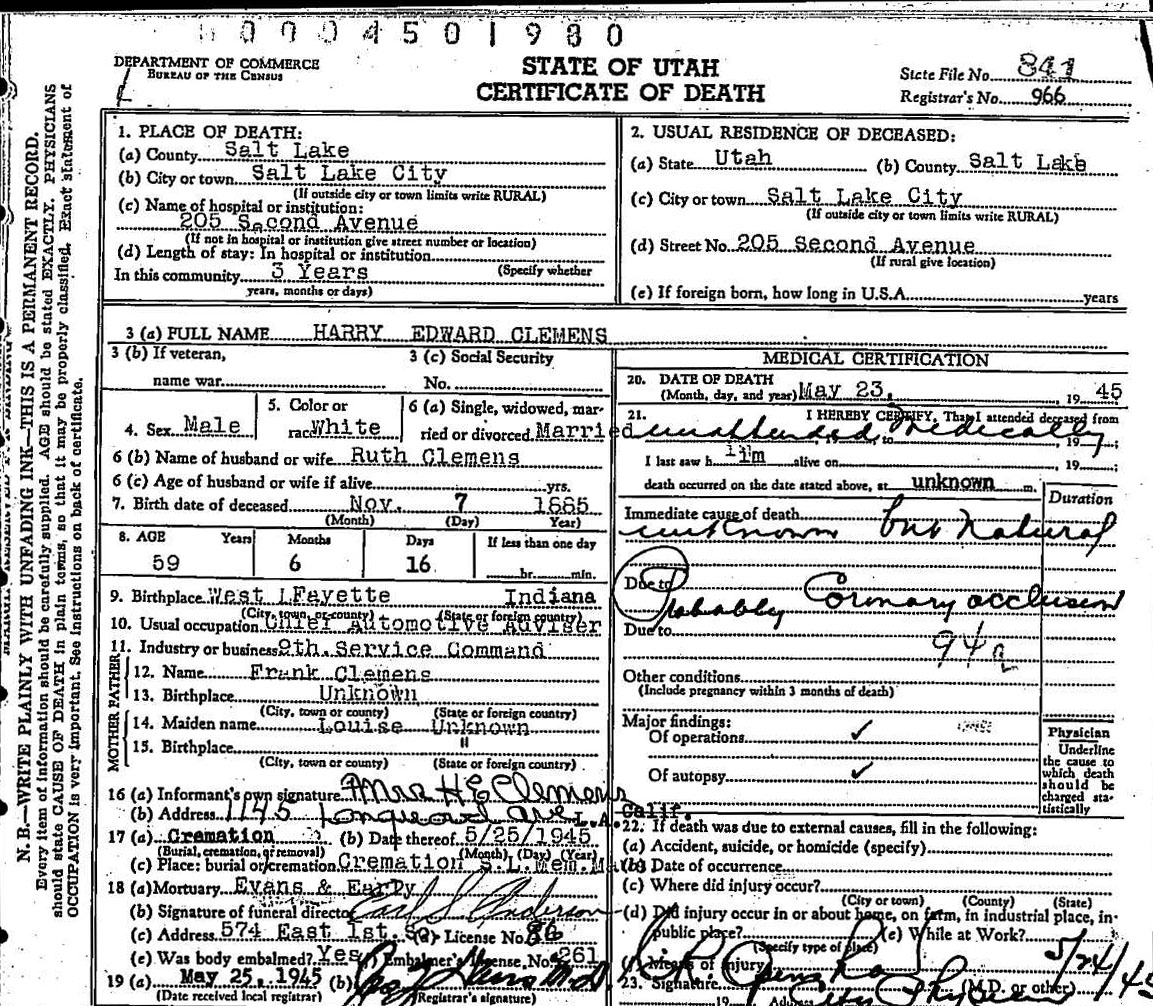 0004501980
DEPARTMENT OF COMMERCE
BUREAU OF THE CENSUS
STATE OF UTAH
CERTIFICATE OF DEATH
State File No. 841
Registrar's No. 966
N. B.—WRITE PLAINLY WITH UNFADING INK—THIS IS A PERMANENT RECORD.
Every item of information should be carefully supplied. AGE should be stated EXACTLY. PHYSICIANS
should state CAUSE OF DEATH in plain terms, so that it may be properly classified. Exact statement of
OCCUPATION is very important. See instructions on back of certificate.
1. PLACE OF DEATH:
(a) County Salt Lake
(b) City or town Salt Lake City
(If outside city or town limits write RURAL)
(c) Name of hospital or institution:
205 Second Avenue
(If not in hospital or institution give street number or location)
(d) Length of stay: In hospital or institution
In this community 3 Years (Specify whether
years, months or days)
2. USUAL RESIDENCE OF DECEASED:
(a) State Utah (b) County Salt Lake
(c) City or town Salt Lake City
(If outside city or town limits write RURAL)
(d) Street No. 205 Second Avenue
(If rural give location)
(e) If foreign born, how long in U.S.A. years
3 (a) FULL NAME HARRY EDWARD CLEMENS
3 (b) If veteran,
name war
3 (c) Social Security
No.
4. Sex Male
5. Color or
race White
6 (a) Single, widowed, mar-
ried or divorced Married
6 (b) Name of husband or wife Ruth Clemens
6 (c) Age of husband or wife if alive yrs.
7. Birth date of deceased Nov. 7 1885
(Month) (Day) Year)
8. AGE Years Months Days If less than one day
59 6 16 hr. min.
9. Birthplace West LFayette Indiana
(City, town, or county) (State or foreign country)
10. Usual occupation Chief Automotive Adviser
11. Industry or business 9th. Service Command
FATHER
12. Name Frank Clemens
13. Birthplace Unknown
(City, town or county) (State or foreign country)
MOTHER
14. Maiden name Louise Unknown
15. Birthplace "
(City, town or county) (State or foreign country)
16 (a) Informant's own signature Mrs H E Clemens
(b) Address 1145 Longwood Ave L.A. Calif.
17 (a) Cremation (b) Date thereof 5/25/1945
(Burial, cremation, or removal) (Month) (Day) (Year)
(c) Place: burial or cremation Cremation S.L. Mem. Mau
18 (a) Mortuary Evans & Early
(b) Signature of funeral director Earl S Anderson
(c) Address 574 East 1st. So. (d) License No. 86
(e) Was body embalmed? Yes Embalmer's License No. 261
19 (a) May 25, 1945 (b)
(Date received local registrar) Registrar's signature)
MEDICAL CERTIFICATION
20. DATE OF DEATH
(Month, day, and year) May 23, 19 45
21. I HEREBY CERTIFY, That I attended deceased from
unattended to medically 19
I last saw h im alive on 19
death occurred on the date stated above, at unknown m.
Duration
Immediate cause of death
unknown but natural
Due to
Probably Coronary occlusion
Due to
94a
Other conditions
(Include pregnancy within 3 months of death)
Major findings:
Of operations ✓
Of autopsy ✓
Physician
Underline
the cause to
which death
should be
charged sta-
tistically
22. If death was due to external causes, fill in the following:
(a) Accident, suicide, or homicide (specify)
(b) Date of occurrence
(c) Where did injury occur?
(City or town) (County) (State)
(d) Did injury occur in or about home, on farm, in industrial place, in
public place? (e) While at Work?
(Specify type of place)
(f) Means of injury 5/24/45
23. Signature (M.D. or other)
19 Address City Physician